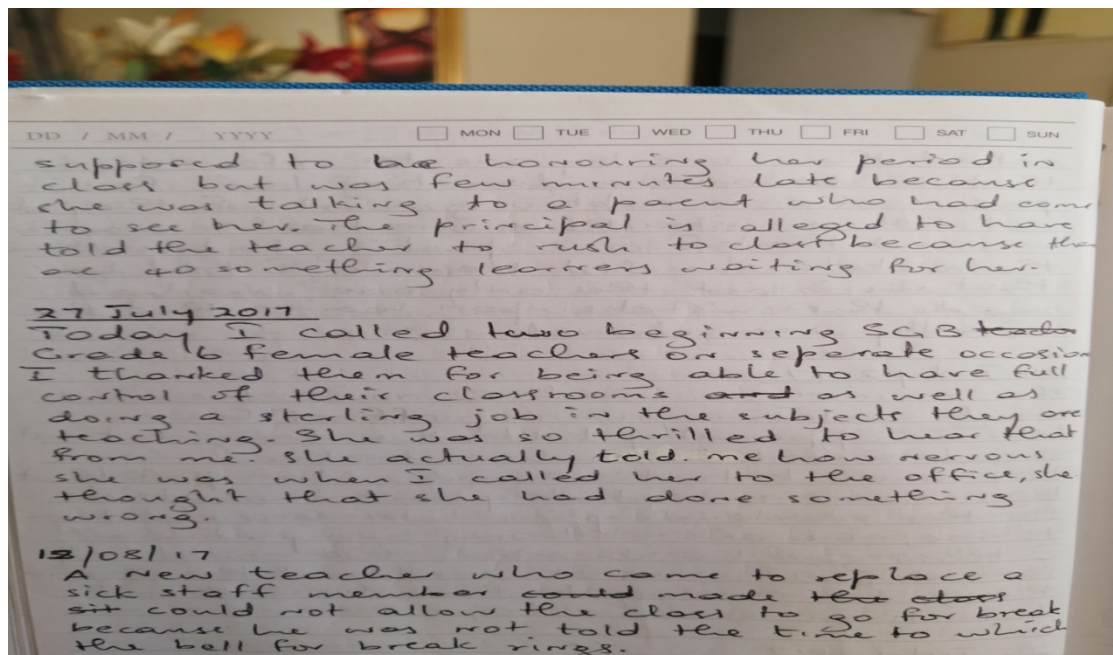 DD / MM / YYYY MON TUE WED THU FRI SAT SUN
supposed to be honouring her period in
class but was few minutes late because
she was talking to a parent who had come
to see her. The principal is alleged to have
told the teacher to rush to class because
are 40 something learners waiting for her.
27 July 2017
Today I called two beginning SGB
Grade 6 female teachers on seperate occasion
I thanked them for being able to have full
control of their classrooms and as well as
doing a sterling job in the subjects they are
teaching. She was so thrilled to hear that
from me. She actually told me how nervous
she was when I called her to the office, she
thought that she had done something
wrong.
12/08/17
A New teacher who came to replace a
sick staff member could made the class
sit could not allow the class to go for break
because he was not told the time to which
the bell for break rings.